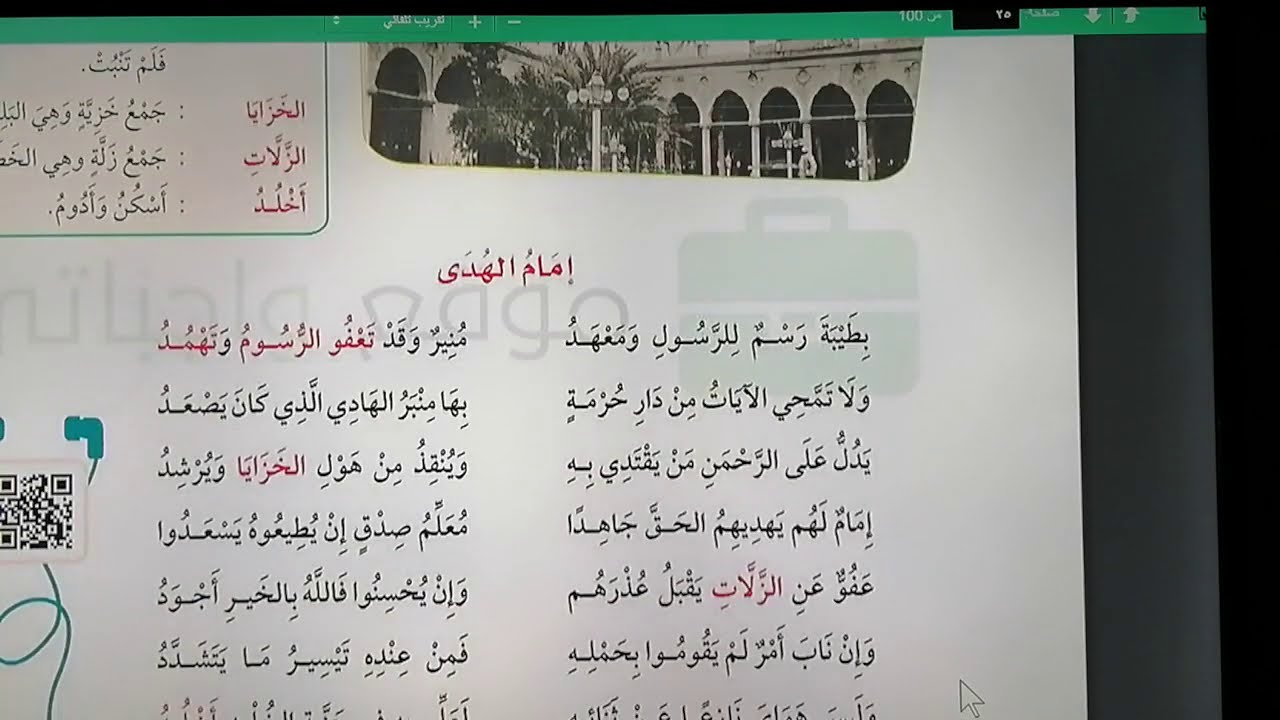 صفحة: ٢٥ من 100 − + تقريب تلقائي
فَلَمْ تَنْبُتْ.
الخَزَايَا : جَمْعُ خَزِيَّةٍ وَهِيَ
الزَّلَّاتِ : جَمْعُ زَلَّةٍ وهِي
أَخْلُدُ : أَسْكُنُ وَأَدُومُ.
إمَامُ الهُدَى
موقع واجباتي
بِطَيْبَةَ رَسْمٌ لِلرَّسُولِ وَمَعْهَدُ مُنِيرٌ وَقَدْ تَعْفُو الرُّسُومُ وَتَهْمُدُ
وَلَا تَمَّحِي الآيَاتُ مِنْ دَارِ حُرْمَةٍ بِهَا مِنْبَرُ الهَادِي الَّذِي كَانَ يَصْعَدُ
يَدُلُّ عَلَى الرَّحْمَنِ مَنْ يَقْتَدِي بِهِ وَيُنْقِذُ مِنْ هَوْلِ الخَزَايَا وَيُرْشِدُ
إِمَامٌ لَهُم يَهدِيهِمُ الحَقَّ جَاهِدًا مُعَلِّمُ صِدْقٍ إِنْ يُطِيعُوهُ يَسْعَدُوا
عَفُوٌّ عَنِ الزَّلَّاتِ يَقْبَلُ عُذْرَهُم وَإِنْ يُحْسِنُوا فَاللَّهُ بِالخَيرِ أَجْوَدُ
وَإِنْ نَابَ أَمْرٌ لَمْ يَقُومُوا بِحَمْلِهِ فَمِنْ عِنْدِهِ تَيْسِيرُ مَا يَتَشَدَّدُ